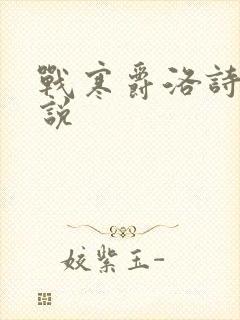 戰寒爵洛詩
說
姣紫玉-